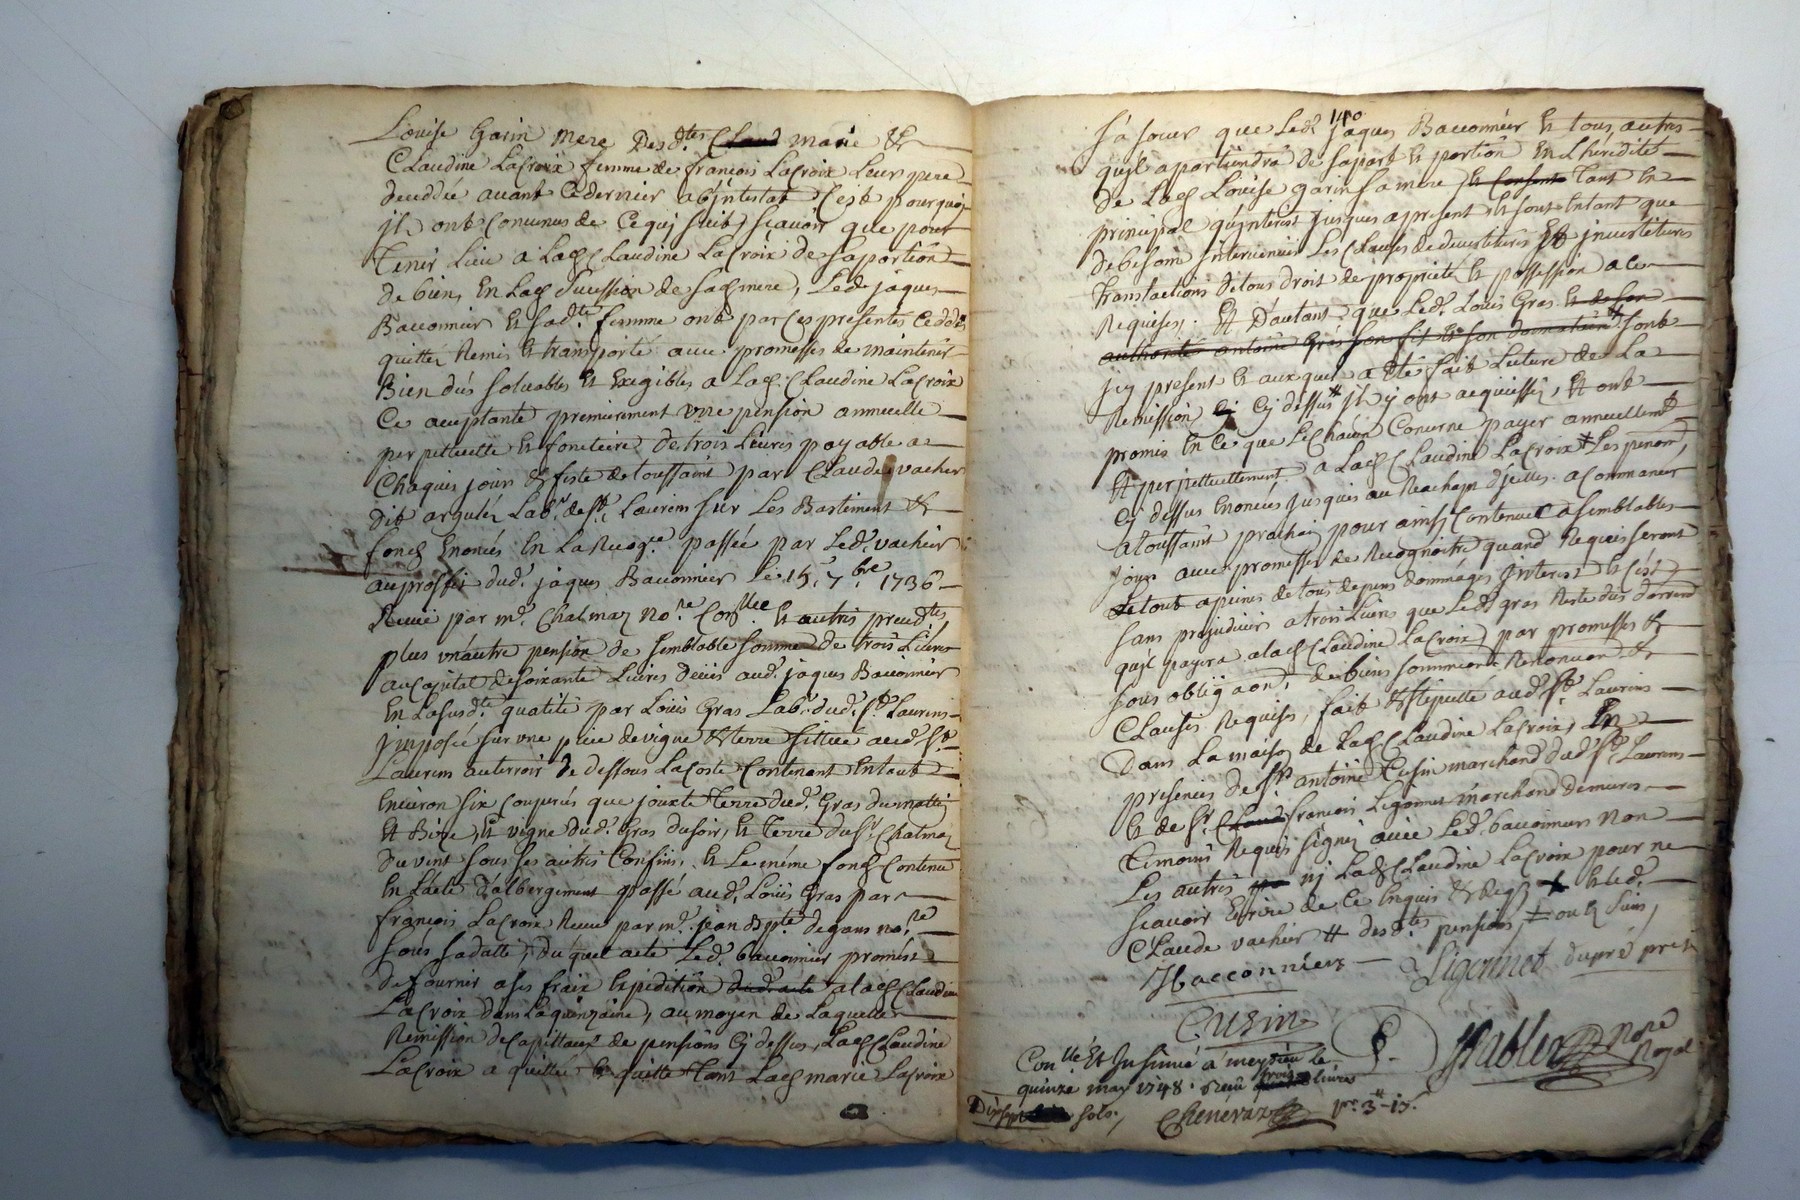 Louise Garin mere Desd.tes Claud marie &
Claudine Lacroix femme de françois Lacroix Leur pere
deceddé avant ce dernier abjntestat C'est pourquoi
jls ont convenus de ce qui suit, sçavoir que pour
tenir Lieu a Lad. Claudine Lacroix de sa portion
de biens En Lad. succession de sad. mere, Led. jaques
Bacconnier Et sad.te femme ont par ces presentes ceddés
quittés Remis Et transporté avec promesses de maintenir
Bien dus solvables Et Exigibles a Lad. Claudine Lacroix
Ce acceptante premierement vne pension annuelle
perpettuelle Et fonciere de trois Livres payable a
Chaques jours & feste de toussaint par Claude vacher
dit Lab.r de St. Laurens sur Les Bastiment &
fondz Enoncés En La Recog.ce passée par Led. vacher
au proffit dud. jaques Bacconnier Le 15. 7.bre 1736
Receue par m.e Chalmaz no.re Con.llée Et autres preced.tes
plus vn autre pension de semblable somme de trois Livres
au capital de soixante Livres deües aud. jaques Bacconnier
En La susd.te qualité par Loüis Gras Lab.r dud. St. Laurens
jmposée sur vne piece de vigne & terre sittuée aud. St.
Laurens au terroir de dessous La Coste Contenant En tout
Environ six couperés que jouxte terre dud. Gras du matin
Et Bize, Et vigne dud. Gras du soir, Et terre du Sr. Chalmaz
du vent sous ses autres Confins, Et Le même fondz Contenu
En L'acte d'albergement passé aud. Loüis Gras par
françois Lacroix Receu par m.e jean Bpt.e degans no.re
sous sa datte, du quel acte Led. bacconnier promest
de fournir a ses fraix Expedition dud. acte a lad. Claudine
Lacroix dans La quinzaine, au moyen de Laquelle
Remission de capittaux de pensions cy dessus, Lad. Claudine
Lacroix a quitté Et quitte tant Lad. marie Lacroix
140
sa soeur que Led. jaques Bacconnier Et tous autres
qu'jl apartiendra de sa part Et portion En L'heredité
de Lad. Louise garin sa mere Et consent tant En
principal qu'jnterest jusques a present Et sont Entant que
de besoin jntervenues Les clauses de devestitures Et jnvestitures
translactions de tous droit de proprieté Et possession a ce
Requises. Et D'autant que Led. Louis Gras Et de son
authorité antoine Gras son fils Et son donnataire sont
jcy present Et aux quel a Eté fait Lecture de La
Remission cy dessus jls y ont acquiessés, Et ont
promis En ce que Le chacun Concerne payer annuellem.t
Et perpettuellement a Lad. Claudine Lacroix Les pensions
cy dessus Enoncées jusques au Rachept d'jcelles a commancer
a toussaint prochain pour ainsy continuer a semblables
jours avec promesses de Recognoitre quand Requis seront
Le tout a peines de tous depens dommages jnterest Et c'est
sans prejudicier a trois Livres que Led. gras Reste dus d'arrerages
qu'jl payera a lad. Claudine Lacroix par promesses &
sous obligaon. de biens sommissions Renonceon &
Clauses Requises, fait & stipullé aud. St. Laurens
dans La maison de Lad. Claudine Lacroix, En
presences de Sr. antoine Cusin marchand dud. St. Laurens
Et de Sr. Claud françois Ligonnet marchand de
temoins Requis signés avec Led. bacconnier Non
Les autres nj Lad. Claudine Lacroix pour ne
scavoir Ecrire de ce Enquis & Reqs. Et Led.
Claude vacher desd.tes pensions,
JBacconnier Ligonnet dupré pret
Cusin
Con.llé Et Insinué a meyzieu Le
quinze may 1748. Receu trois livres
Dixsept sols.
Chenevaz pr. 3# - 15s.
Pablet No.re Royal